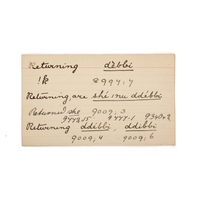 Returning ddĕbbi
!k 8999.7
Returning are shé ˌnu ddíbbi
Returned she 9009.3
9448.15 9447.1 9340.2
Returning ddíbbi, ddíbbi
9009.4 9009.6